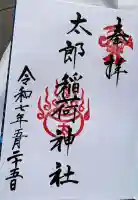 奉拝
太郎稲荷神社
令和七年五月二十五日